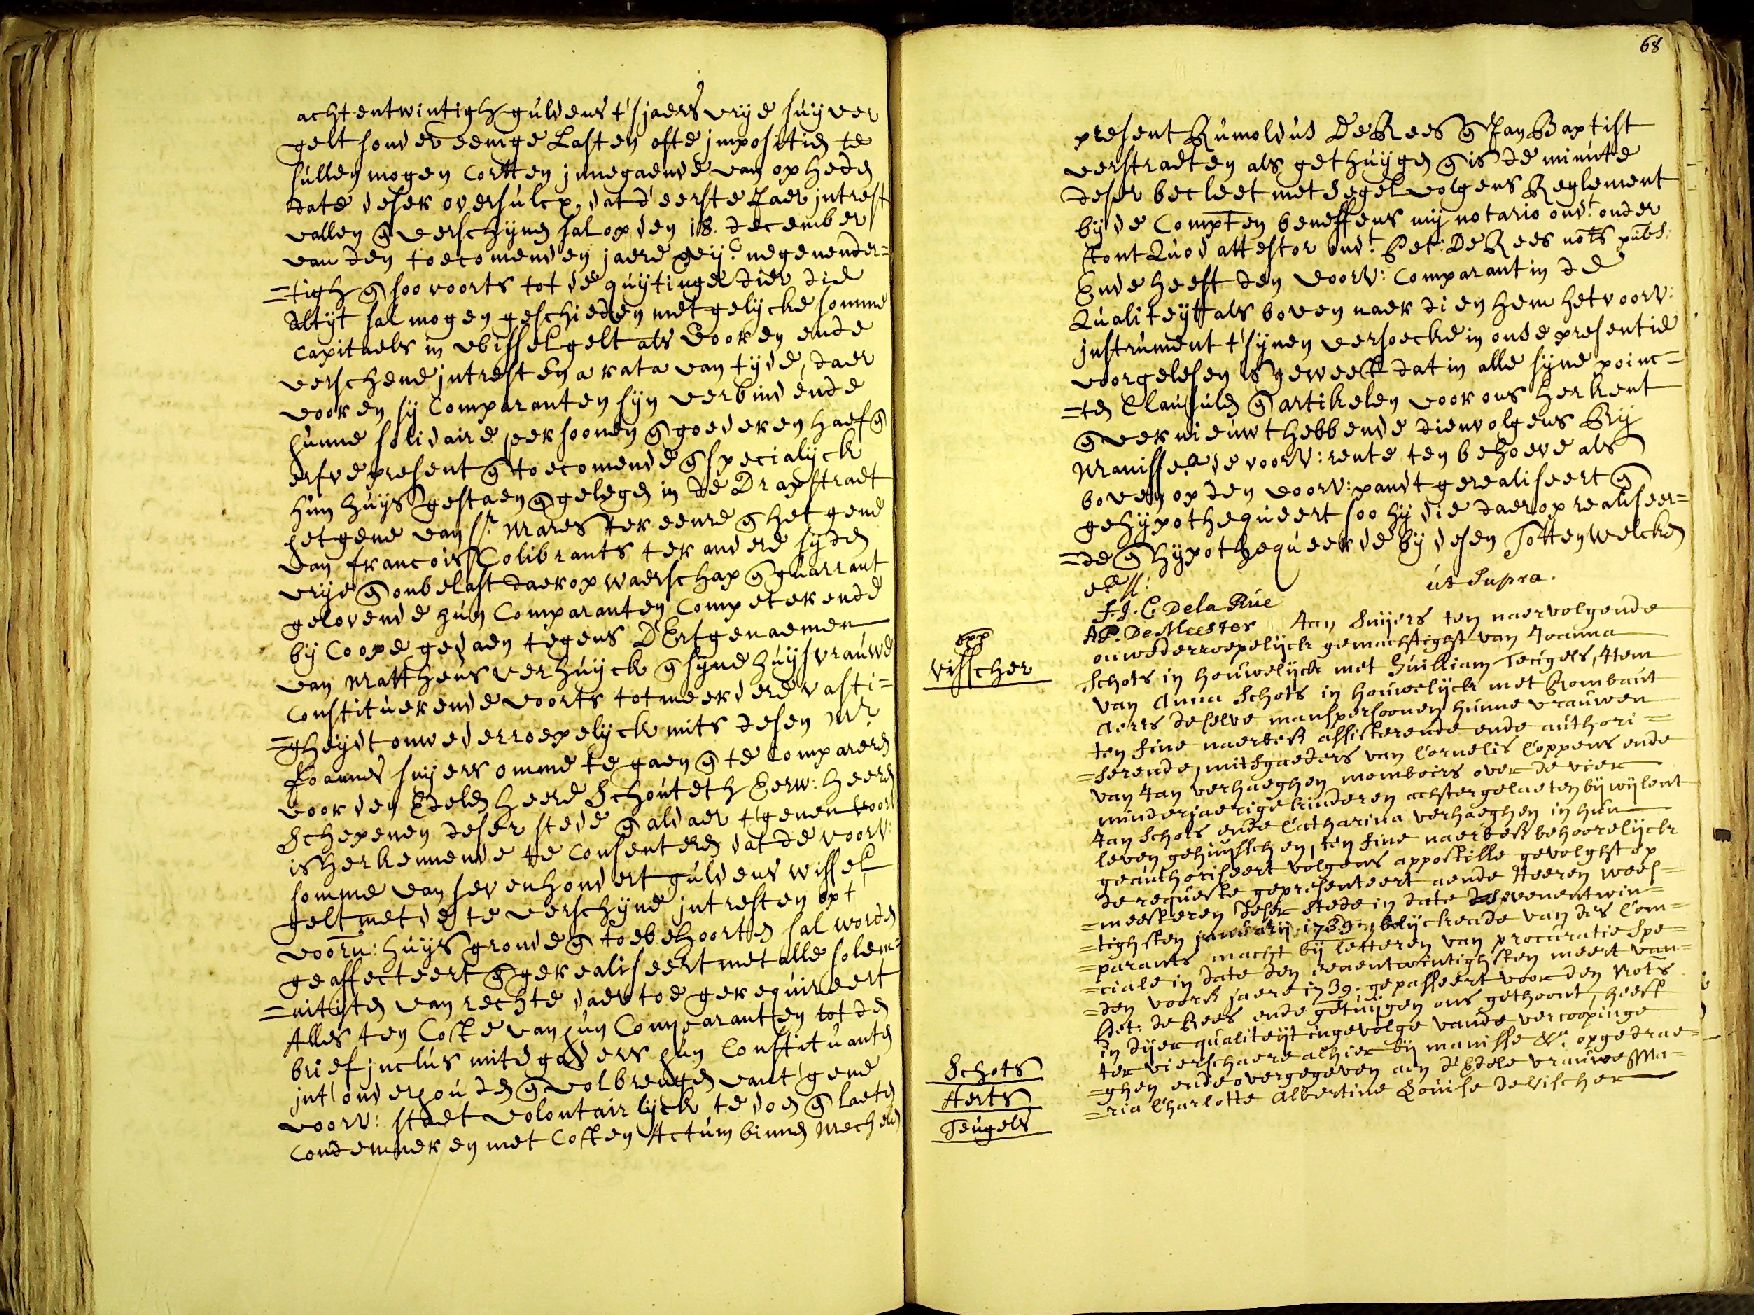 achtentwintigh guldens t'sjaers vrije suijver
gelt sonder eenige Lasten ofte impositien te
sullen mogen cortten innegaende van op heden
date deser oversulcx dat d'eerste Jaer intrest
vallen & verschijnen sal op den 18. december
van den toecomenden jaere negenender=
=tigh & soo voorts tot de quijtinge dier die
altijt sal mogen geschieden met gelijcke somme
capitaels in wisselgelt als vooren ende
verschene intresten a rata van tijde, daer
vooren sij Comparanten sijn verbindende
hunne solidaire persoonen & goederen haef &
erfve present & toecomende & specialijck
hun huijs gestaen & gelegen in de Drapstraet
hetgene van Sr. Mares ter eenre & het gene
van francois Colibrants ter andere sijden
vrije & onbelast daerop waerschap & guarrant
gelovende hun Comparanten Competerende
bij Coope gedaen tegens D'Erfgenaemen
van Mattheus verhuijck & sijne huijsvrauwe
Constituerende voorts tot meerdere vasti=
=gheijdt onwederroepelijck mits desen Mr.
Joannes suijers omme te gaen & te compareren
voor den Edelen heere Schouteth Eerw: heeren
Schepenen deser stede & aldaer t'genen voors
is herkennende te Consenteren dat de voors:
somme van sevenhondert guldens wissel
gelt met de te verschijne intresten opt
voorn: huijs gronde & toebehoorten sal worden
geaffecteert & gerealiseert met alle solem=
=niteten van rechte daer toe gerequireert
Alles ten Coste van hun Comparanten tot den
brief inclus mitsgaders hun Constituanten
int onderhouden & volbrengen vant gene
voors: staet volontairlijck te doen & laeten
condemneren met Costen Actum binnen Mechelen
68
present Rumoldus De Rees & Jan Baptist
verstraeten als gethuijgen & is de minute
deser becleet met segel volgens Reglement
bij de Compten beneffens mij notario ondt. onder
stont Quod attestor ondt. Pet: De Rees nots publ:
Ende heeft den voors: Comparant in de
Qualiteijt als boven naer dien hem het voors:
instrument t'sijnen versoecke in onse presentie
voorgelesen is geweest dat in alle sijne poinc=
=ten Clausulen & artikelen voor ons herkent
& vernieuwt hebbende dienvolgens Bij
Manisse de voors: rente ten behoeve als
boven op den voors: pandt gerealiseert &
gehypothequeert soo hij die daerop realiseer=
=de & hypothequeerde bij desen Totten welcken
etc.
ut supra.
F. J. C. De la Rue
A. P. De Meester Jan Suijers ten naervolgende
onwederroepelijck gemachtight van Joanna
Schots in houwelijck met Guilliam Teugels, Item
van Anna Schots in houwelijck met Rombaut
Aerts deselve manspersoonen hunne vrauwen
ten fine naerbes. assisterende ende authori=
=serende, mitsgaeders van Cornelis Coppens ende
van Jan verhaeghen momboirs over de vier
minderjaerige kinderen achtergelaeten bij wijlent
Jan Schots ende Catharina verhaeghen in hun
leven gehuijsschen, ten fine naerbes. behoorelijck
geauthoriseert volgens appostille gevolght op
de requeste gepresenteert aende Heeren wees=
=meesteren deser stede in date sevenentwin=
=tighsten januarij 1739 blijckende van des Com=
=parants macht bij letteren van procuratie spe=
=ciale in date den eenentwintighsten meert van=
=den voors. jaere 1739. gepasseert voor den Nots
Pet: De Rees ende getuijgen ons gethoont, heeft
in dijer qualiteijt ingevolge vande vercoopinge
ter vierschaere alhier bij manisse &a. opgedrae=
=ghen ende overgegeven aen d'Edele vrauwe Ma=
=ria Charlotte Albertine Louise de Visscher
opp
Visscher
Schots
Aerts
Teugels